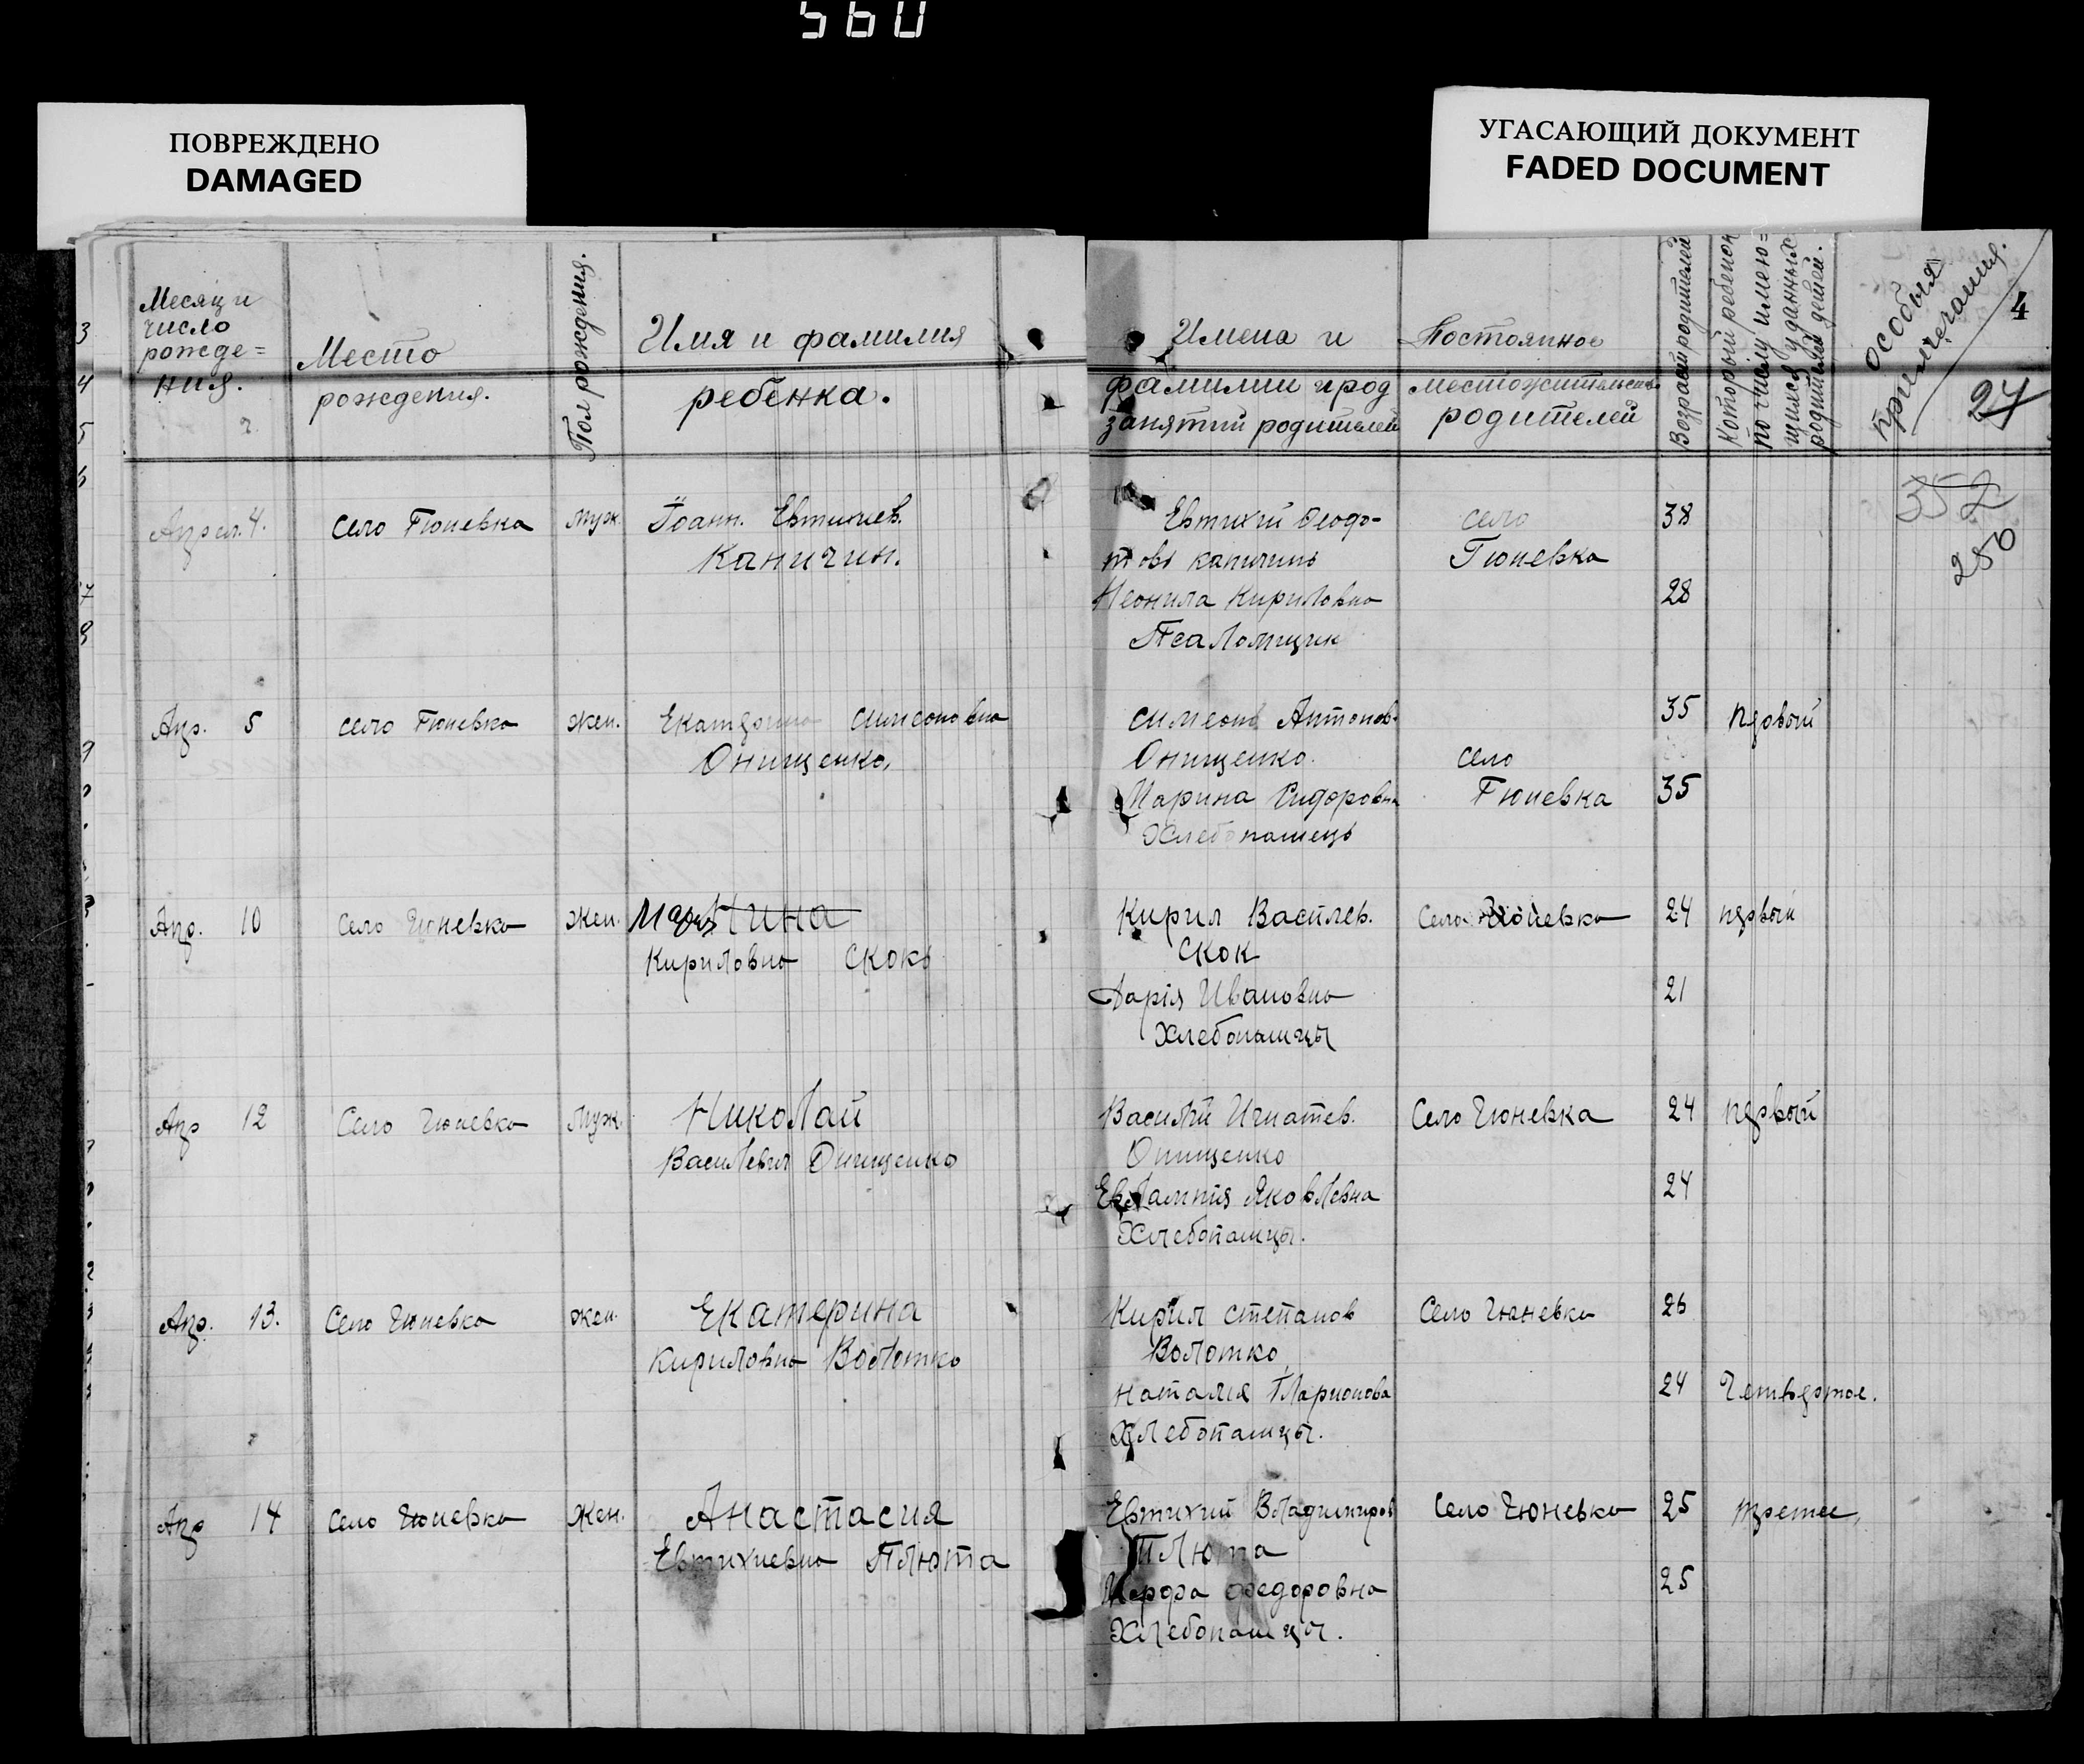 560
ПОВРЕЖДЕНО
DAMAGED
УГАСАЮЩИЙ ДОКУМЕНТ
FADED DOCUMENT
4
24
352
250
Месяц и
число
рожде=
ния.
Место
рождения.
Пол рождения.
Имя и фамилия
ребенка.
Имена и
фамилии и род
занятий родителей
Постоянное
местожительство
родителей
Возраст родителей
Который ребенок
по числу имею=
щихся у данных
родителей детей.
Особыя
примечания.
Апрел. 4.
село Гюневка
муж.
Іоанн. Евтихиев.
Каничин.
Евтихий Феодо-
товъ каничинъ
Неонила Кириловна
Псаломщик
село
Гюневка
38
28
Апр. 5
село Гюневка
жен.
Екатерина симеоновна
Онищенко,
симеонъ Антонов.
Онищенко.
Марина Сидоровна
Хлебопашець
село
Гюневка
35
35
первый
Апр. 10
Село Гюневка
жен.
Мария Нина
Кириловна Скокъ
Кирил Василев.
Скок
Дарія Ивановна
Хлебопашцы
Село Гюневка
24
21
первый
Апр 12
Село Гюневка
Муж.
Николай
Василевич Онищенко
Василий Игнатев.
Онищенко
Евлампия Яковлевна
Хлебопашцы.
Село Гюневка
24
24
первый
Апр. 13.
Село Гюневка
жен.
Екатерина
Кириловна Волотко
Кирил степанов
Волотко
Наталия Иларионова
Хлебопашцы.
Село Гюневка
26
24
Четвертое.
Апр 14
Село Гюневка
Жен.
Анастасия
Евтихиевна Плюта
Евтихий Владимиров
Плюта
федоровна
Хлебопашцы.
Село Гюневка
25
25
третее,